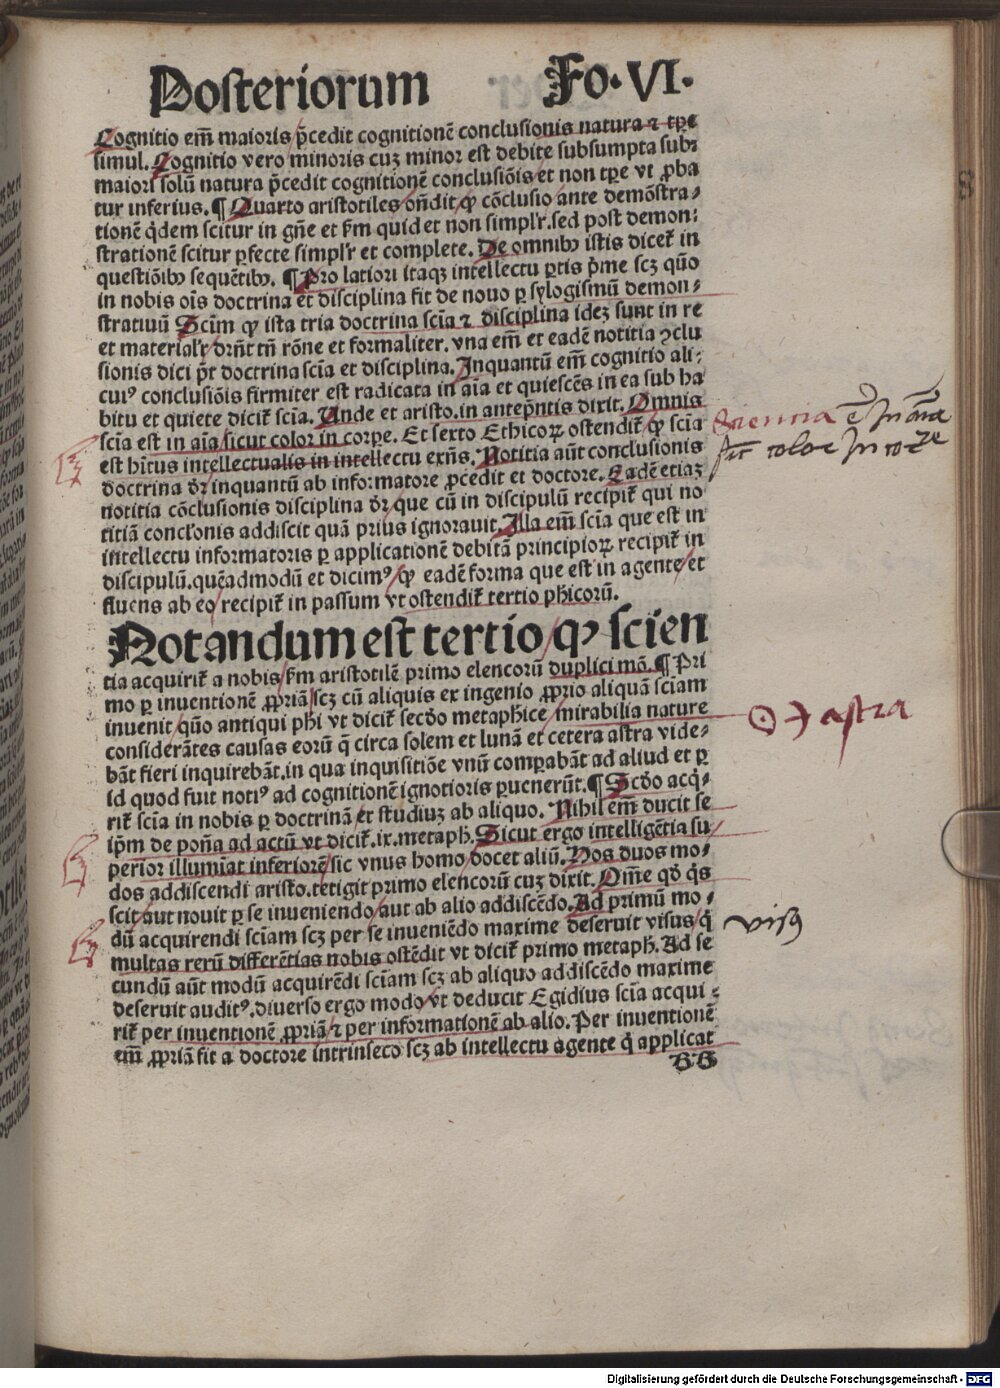 Posteriorum Fo. VI.
Cognitio em̄ maioris p̄cedit cognitionē conclusionis natura ⁊ tꝑe
simul. Cognitio vero minoris cuꝫ minor est debite subsumpta sub
maiori solū natura p̄cedit cognitionē conclusiōis et non tꝑe vt ꝓba
tur inferius. ¶ Quarto aristotiles oñdit ꝙ cōclusio ante demōstra-
tionē q̇dem scitur in gñe et ẜm quid et non simplr̄. sed post demon-
strationē scitur ꝑfecte simplr̄ et complete. De omnibꝰ istis dicet̄ in
questiōibꝰ sequētibꝰ. ¶ Pro latiori itaqꝫ intellectu ꝑtis p̄me scꝫ quō
in nobis oīs doctrina et disciplina fit de nouo ꝑ sylogismū demon-
stratiuū Scīm ꝙ ista tria doctrina scīa ⁊ disciplina ideꝫ sunt in re
et materialr̄ drñt tñ rōne et formaliter. vna em̄ et eadē notitia ꝯclu
sionis dici p̄t doctrina scīa et disciplina. Inquantū em̄ cognitio ali-
cuiꝰ conclusiōis firmiter est radicata in aīa et quiescēs in ea sub ha
bitu et quiete dicit̄ scīa. Unde et aristo. in antep̄ntis dixit. Omnis
scīa est in aīa sicut color in corpe. Et sexto Ethicoꝝ ostendit̄ ꝙ scīa
est hītus intellectualis in intellectu exñs. Notitia aūt conclusionis
doctrina dr̄ inquantū ab informatore ꝓcedit et doctore. Eadē etiaꝫ
notitia cōclusionis disciplina dr̄ que cū in discipulū recipit̄ qui no
titiā conclōnis addiscit quā prius ignorauit. Illa em̄ scīa que est in
intellectu informatoris ꝑ applicationē debitā principioꝝ recipit̄ in
discipulū. quēadmodū et dicimꝰ ꝙ eadē forma que est in agente et
fluens ab eo recipit̄ in passum vt ostendit̄ tertio phicorū.
Notandum est tertio ꝙ scien
tia acquirit̄ a nobis ẜm aristotilē primo elencorū duplici mā. ¶ Pri
mo ꝑ inuentionē ꝓpriā scꝫ cū aliquis ex ingenio ꝓprio aliquā sciam
inuenit quō antiqui phi vt dicit̄ secdo metaphice mirabilia nature
considerātes causas eorū q̄ circa solem et lunā et cetera astra vide-
bāt fieri inquirebāt. in qua inquisitiōe vnū comꝑabāt ad aliud et ꝑ
id quod fuit notiꝰ ad cognitionē ignotioris ꝑuenerūt. ¶ Scdo acq̇-
rit̄ scīa in nobis ꝑ doctrinā et studiuꝫ ab aliquo. Nihil em̄ ducit se
ip̄m de poña ad actū vt dicit̄. ix. metaph. Sicut ergo intelligētia su-
perior illumīat inferiorē sic vnus homo docet aliū. Nos duos mo-
dos addiscendi aristo. tetigit primo elencorū cuꝫ dixit. Om̄e qd q̇s
scit aut nouit ꝑ se inueniendo aut ab alio addiscēdo. Ad primū mo-
dū acquirendi scīam scꝫ per se inueniēdo maxime deseruit visus q̇
multas rerū differētias nobis ostēdit vt dicit̄ primo metaph. Ad se
cundū aūt modū acquirēdi scīam scꝫ ab aliquo addiscēdo maxime
deseruit auditꝰ. diuerso ergo modo vt deducit Egidius scīa acqui-
rit̄ per inuentionē ꝓpriā ⁊ per informationē ab alio. Per inuentionē
em̄ ꝓpriā fit a doctore intrinseco scꝫ ab intellectu agente q̇ applicat
BB
Sciencia ē In aīa
sic̄ color In corꝑe
☉ ☽ astra
visꝰ
Digitalisierung gefördert durch die Deutsche Forschungsgemeinschaft - DFG